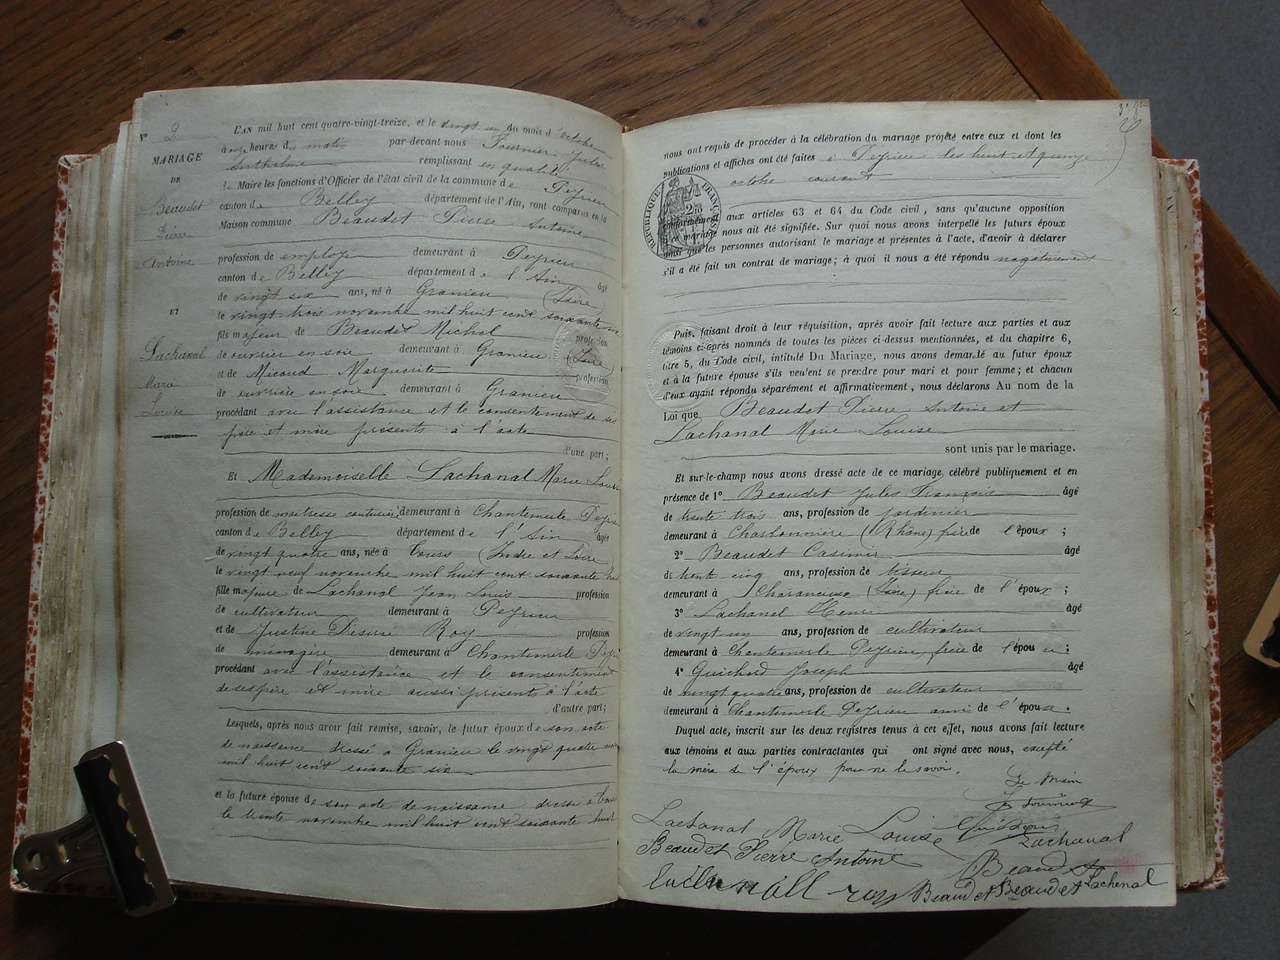 N° 2
MARIAGE
DE
Beaudet
Pierre
Antoine
ET
Lachanal
Marie
Louise
L'AN mil huit cent quatre-vingt-treize, et le vingt un du mois d'octobre
à onze heures du matin par-devant nous Fournier Jules
Anthelme remplissant en qualité
de Maire les fonctions d'Officier de l'état civil de la commune de Peyrieu
canton de Belley département de l'Ain, ont comparus en la
Maison commune Beaudet Pierre Antoine
profession de employé demeurant à Peyrieu
canton de Belley département de l'Ain âgé
de vingt six ans, né à Granieu (Isère)
le vingt trois novembre mil huit cent soixante six
fils majeur de Beaudet Michel profession
de ouvrier en soie demeurant à Granieu (Isère)
et de Micoud Marguerite profession
de ouvrière en soie demeurant à Granieu
procédant avec l'assistance et le consentement de ses
père et mère présents à l'acte
d'une part;
Et Mademoiselle Lachanal Marie Louise
profession de maîtresse couturière demeurant à Chantemerle Peyrieu
canton de Belley département de l'Ain âgée
de vingt quatre ans, née à Tours (Indre et Loire)
le vingt neuf novembre mil huit cent soixante huit
fille majeure de Lachanal Jean Louis profession
de cultivateur demeurant à Peyrieu
et de Justine Désirée Roy profession
de ménagère demeurant à Chantemerle Peyrieu
procédant avec l'assistance et le consentement
de ses père et mère aussi présents à l'acte
d'autre part;
Lesquels, après nous avoir fait remise, savoir, le futur époux de son acte
de naissance dressé à Granieu le vingt quatre novembre
mil huit cent soixante six
et la future épouse de son acte de naissance dressé à Tours
le trente novembre mil huit cent soixante huit
nous ont requis de procéder à la célébration du mariage projeté entre eux et dont les
publications et affiches ont été faites à Peyrieu les huit et quinze
octobre courant
RÉPUBLIQUE FRANÇAISE
conformément aux articles 63 et 64 du Code civil, sans qu'aucune opposition
à ce mariage nous ait été signifiée. Sur quoi nous avons interpellé les futurs époux
ainsi que les personnes autorisant le mariage et présentes à l'acte, d'avoir à déclarer
s'il a été fait un contrat de mariage; à quoi il nous a été répondu négativement
Puis, faisant droit à leur réquisition, après avoir fait lecture aux parties et aux
témoins ci-après nommés de toutes les pièces ci-dessus mentionnées, et du chapitre 6,
titre 5, du Code civil, intitulé Du Mariage, nous avons demandé au futur époux
et à la future épouse s'ils veulent se prendre pour mari et pour femme; et chacun
d'eux ayant répondu séparément et affirmativement, nous déclarons Au nom de la
Loi que Beaudet Pierre Antoine et
Lachanal Marie Louise
sont unis par le mariage.
Et sur-le-champ nous avons dressé acte de ce mariage, célébré publiquement et en
présence de 1° Beaudet Jules François âgé
de trente trois ans, profession de jardinier
demeurant à Charbonnière (Rhône) frère de l'époux;
2° Beaudet Casimir âgé
de trente cinq ans, profession de tisseur
demeurant à Charancieu (Isère) frère de l'époux;
3° Lachanal Henri âgé
de vingt un ans, profession de cultivateur
demeurant à Chantemerle Peyrieu frère de l'épouse;
4° Guichard Joseph âgé
de vingt quatre ans, profession de cultivateur
demeurant à Chantemerle Peyrieu ami de l'épouse.
Duquel acte, inscrit sur les deux registres tenus à cet effet, nous avons fait lecture
aux témoins et aux parties contractantes qui ont signé avec nous, excepté
la mère de l'époux pour ne le savoir.
Le Maire
J Fournier
Lachanal Marie Louise
Lachanal
Beaudet Pierre Antoine
Beaudet
roy Beaudet Beaudet Lachenal